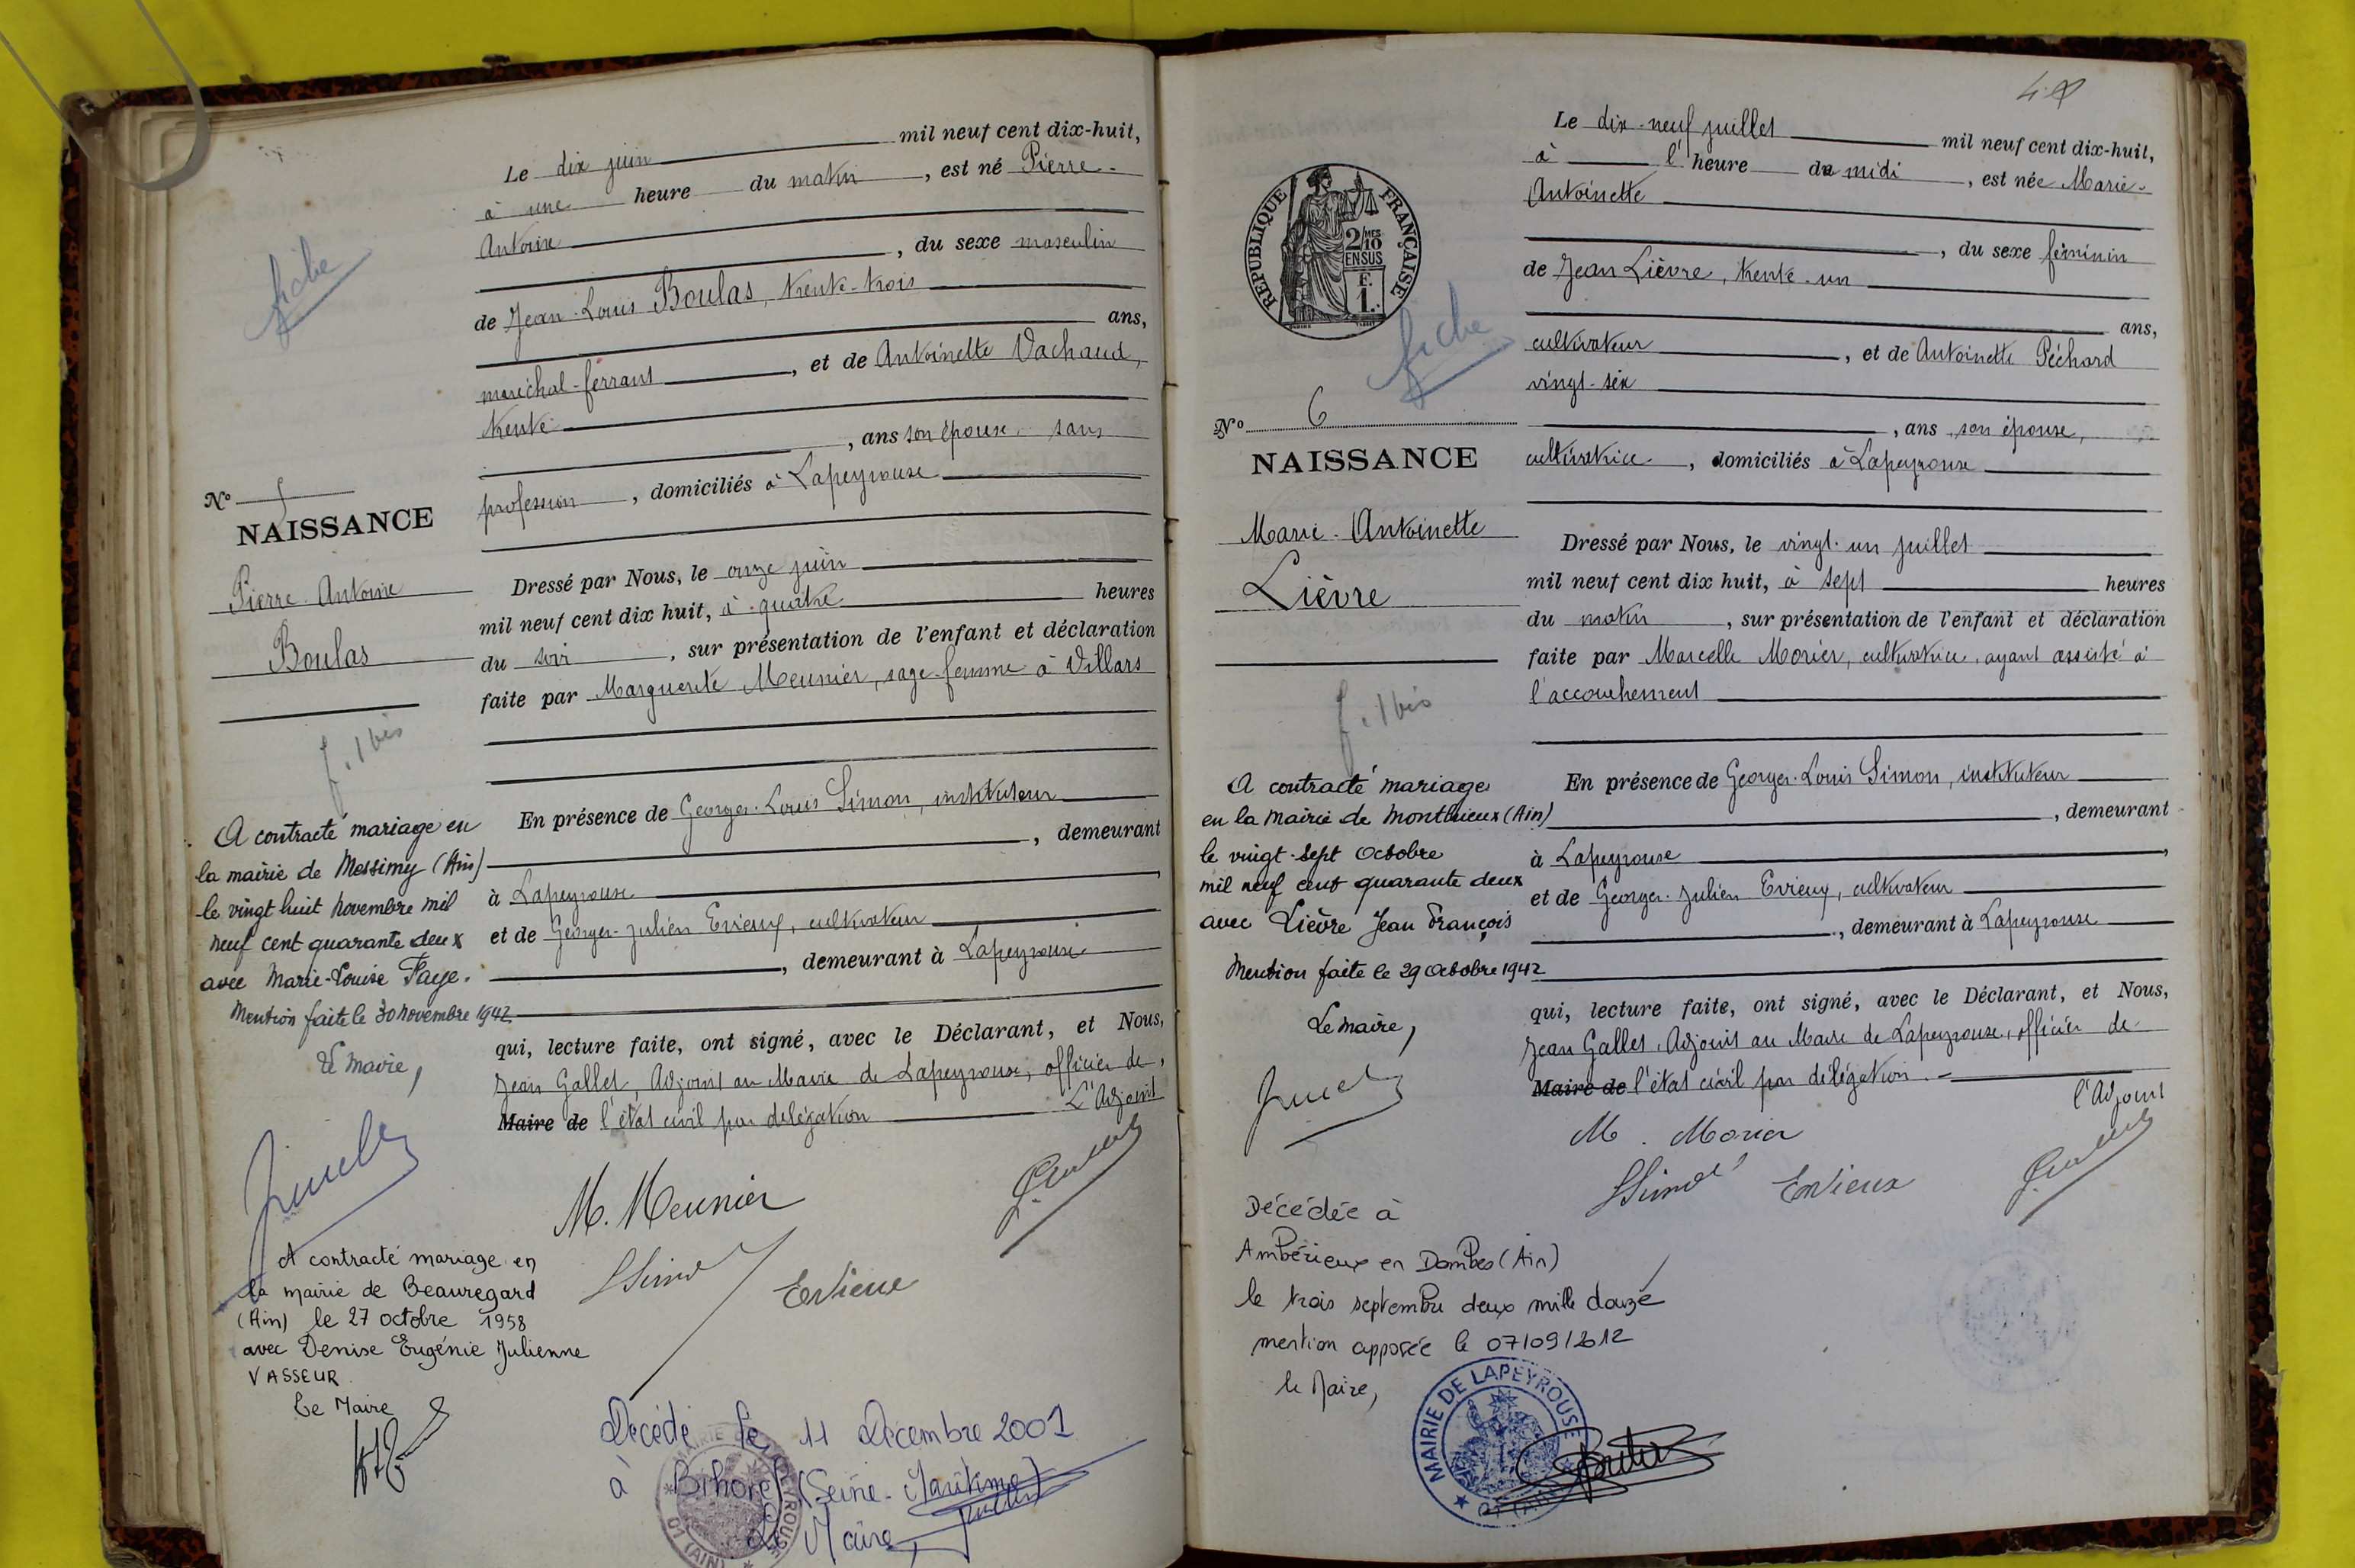 Le dix juin mil neuf cent dix-huit,
à une heure du matin, est né Pierre-
Antoine
, du sexe masculin
de Jean-Louis Boulas, trente-trois
ans,
maréchal-ferrant, et de Antoinette Vachaud,
trente
, ans son épouse sans
profession, domiciliés à Lapeyrouse
fiche
No 5
NAISSANCE
Pierre-Antoine
Boulas
Dressé par Nous, le onze juin
mil neuf cent dix huit, à quatre heures
du soir, sur présentation de l'enfant et déclaration
faite par Marguerite Meunier, sage-femme à Villars
f. 1 bis
En présence de Georges-Louis Simon, instituteur
, demeurant
à Lapeyrouse,
et de Georges-Julien Evieux, cultivateur
, demeurant à Lapeyrouse
qui, lecture faite, ont signé, avec le Déclarant, et Nous,
Jean Gallet, Adjoint au Maire de Lapeyrouse, officier de
Maire de l'état civil par délégation L'Adjoint
A contracté mariage en
la mairie de Messimy (Ain)
le vingt huit novembre mil
neuf cent quarante deux
avec Marie-Louise Faye.
Mention faite le 30 novembre 1942.
Le maire,
M. Meunier
LSimon
Evieux
A contracté mariage en
la mairie de Beauregard
(Ain) le 27 octobre 1958
avec Denise Eugénie Julienne
VASSEUR
Le Maire
Décédé le 11 Décembre 2001
à Bihorel (Seine-Maritime)
Le Maire,
MAIRIE DE LAPEYROUSE
01 (AIN)
Le dix-neuf juillet mil neuf cent dix-huit,
à l'heure de midi, est née Marie-
Antoinette
, du sexe féminin
de Jean Lièvre, trente-un
ans,
cultivateur, et de Antoinette Péchard
vingt-six
, ans son épouse,
cultivatrice, domiciliés à Lapeyrouse
REPUBLIQUE FRANÇAISE
2/10 MES
EN SUS
F.
1.
fiche
No 6
NAISSANCE
Marie-Antoinette
Lièvre
Dressé par Nous, le vingt-un juillet
mil neuf cent dix huit, à sept heures
du matin, sur présentation de l'enfant et déclaration
faite par Marcelle Morier, cultivatrice, ayant assisté à
l'accouchement
f. 1 bis
En présence de Georges-Louis Simon, instituteur
, demeurant
à Lapeyrouse,
et de Georges-Julien Evieux, cultivateur
, demeurant à Lapeyrouse
qui, lecture faite, ont signé, avec le Déclarant, et Nous,
Jean Gallet, Adjoint au Maire de Lapeyrouse, officier de
Maire de l'état civil par délégation.
l'Adjoint
A contracté mariage
en la mairie de Monthieux (Ain)
le vingt-sept Octobre
mil neuf cent quarante deux
avec Lièvre Jean François
Mention faite le 29 Octobre 1942
Le maire,
M. Morier
LSimon
Evieux
Décédée à
Ambérieux en Dombes (Ain)
le trois septembre deux mille douze
mention apposée le 07/09/2012
le Maire,
MAIRIE DE LAPEYROUSE
01 (AIN)